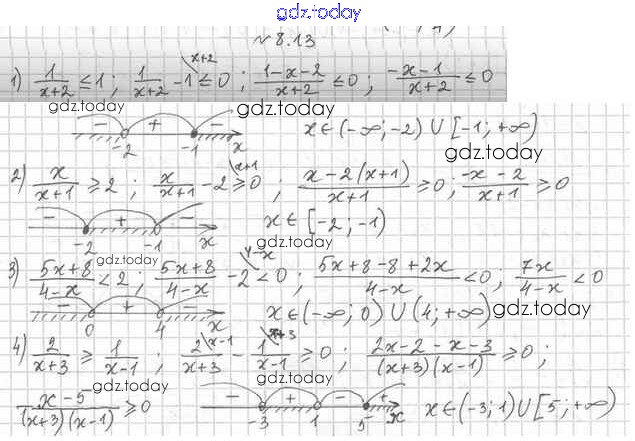 gdz.today
№8.13
1) 1/(x+2) ≤ 1 ; 1/(x+2) - 1 \x+2 ≤ 0 ; (1-x-2)/(x+2) ≤ 0 ; (-x-1)/(x+2) ≤ 0
gdz.today gdz.today
- + - -2 -1 x x∈(-∞;-2) ∪ [-1;+∞)
gdz.today
2) x/(x+1) ≥ 2 ; x/(x+1) - 2 \x+1 ≥ 0 ; (x-2(x+1))/(x+1) ≥ 0 ; (-x-2)/(x+1) ≥ 0
- + - -2 -1 x x∈[-2;-1)
gdz.today
gdz.today
3) (5x+8)/(4-x) < 2 ; (5x+8)/(4-x) - 2 \4-x < 0 ; (5x+8-8+2x)/(4-x) < 0 ; 7x/(4-x) < 0
- + - 0 4 x x∈(-∞;0) ∪ (4;+∞)
gdz.today gdz.today
4) 2/(x+3) ≥ 1/(x-1) ; 2 \x-1/(x+3) - 1 \x+3/(x-1) ≥ 0 ; (2x-2-x-3)/((x+3)(x-1)) ≥ 0 ;
gdz.today gdz.today
(x-5)/((x+3)(x-1)) ≥ 0 - + - + -3 1 5 x x∈(-3;1)∪[5;+∞)